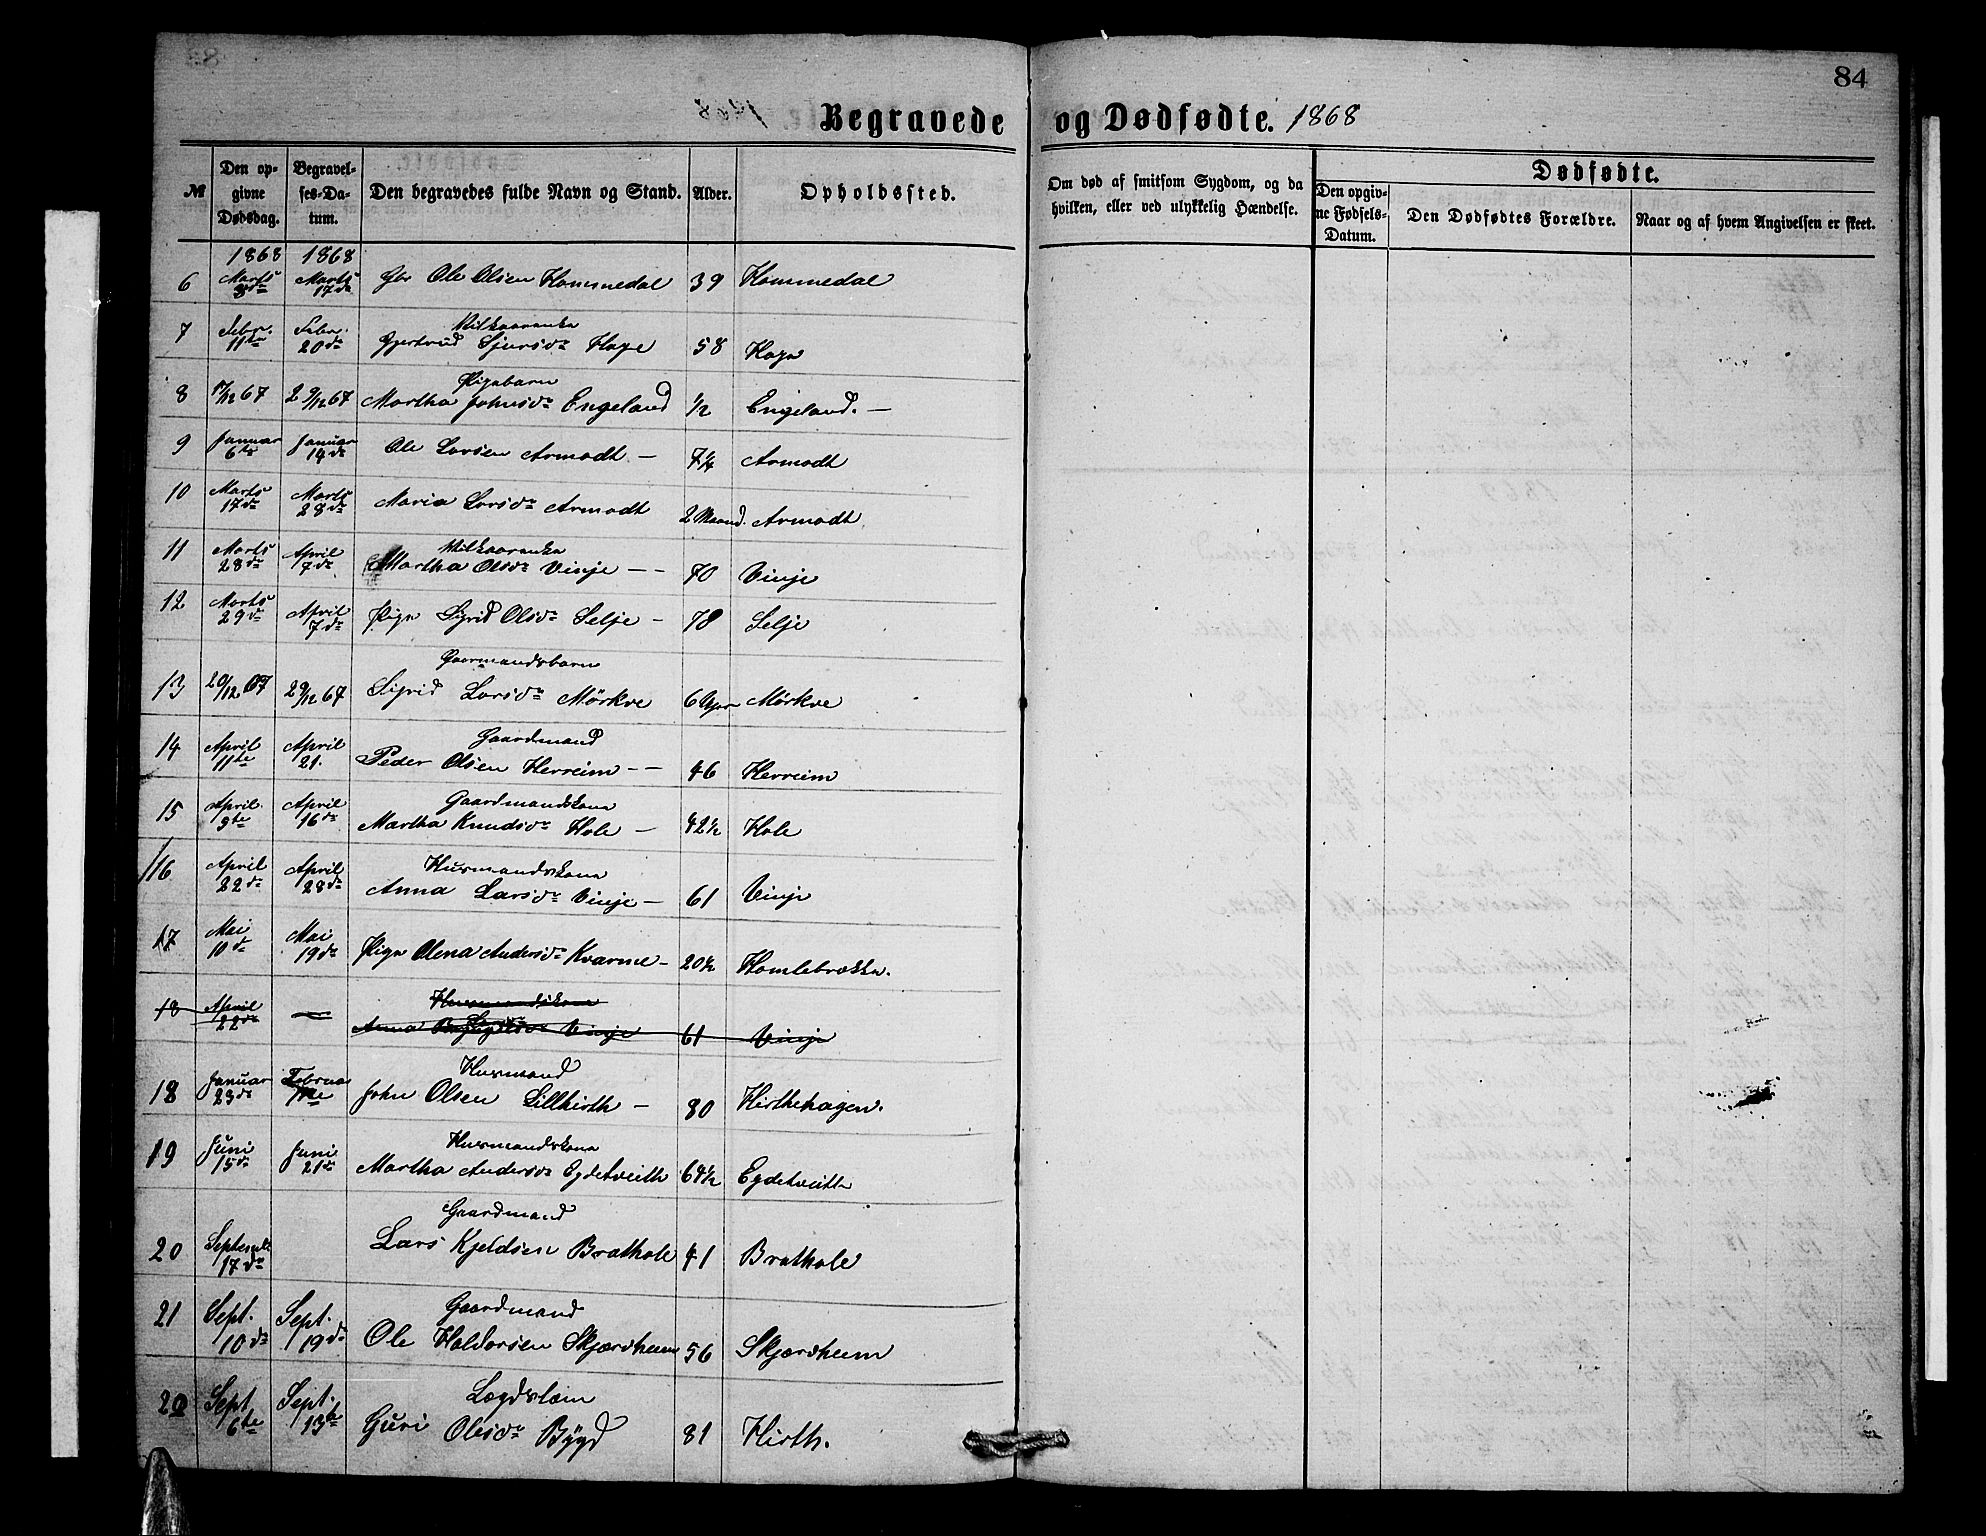 84
Begravede og Dødfødte. 1868
№ Den opgivne Dødsdag. Begravelses-Datum. Den begravedes fulde Navn og Stand. Alder. Opholdssted. Om død af smitsom Sygdom, og da hvilken, eller ved ulykkelig Hændelse. Dødfødte. Den opgivne Fødsels-Datum. Den Dødfødtes Forældre. Naar og af hvem Angivelsen er skeet.
1868 1868
6 Marts 3de Marts 17de Gbr Ole Olsen Hommedal 39 Hommedal
Vilkaarenke
7 Febr. 11te Febr. 20de Gjertrud Sjursdr Hage 58 Haga
Pigebarn
8 17/12 67 29/12 67 Martha Johnsdr Engeland 1/2 Engeland. —
9 Januar 6te Januar 14de Ole Larsen Armodt — 7 1/4 Armodt
10 Marts 17de Marts 28de Maria Larsdr Armodt 2 Maaned. Armodt
Vilkaarenke
11 Marts 28de April 7de Martha Olsdr Vinje — — 70 Vinje
12 Marts 29de April 7de Pige Sigrid Olsdr Selje — 78 Selje
Gaarmandsbarn
13 20/12 67 29/12 67 Sigrid Larsdr Mörkve 6 Uger Mörkve
Gaardmand
14 April 11te April 21. Peder Olsen Herreim — — 46 Herreim
Gaardmandskone
15 April 9te April 16de Martha Knudsdr Hole — 42 1/2 Hole
Husmandskone
16 April 22de April 28de Anna Larsdr Vinje — 61 Vinje
17 Mai 10de Mai 19de Pige Olena Andersdr Kvarme — 20 1/2 Homlebrække.
Husmandskone
18 April 22de — Anna Vinje 61 Vinje
Husmand
18 Januar 23de Februar John Olsen Lillhirth — 80 Hirthehagen.
Husmandskone
19 Juni 15de Juni 21de Martha Andersdr Egdetveith 64 1/2 Egdetveith
Gaardmand
20 September 17de Lars Kjeldsen Brathole 41 Brathole
Gaardmand
21 Sept. 10de Sept. 19de Ole Haldorsen Skjærsheim 56 Skjærsheim
Lægdslem
Sept. 6te Sept. 13te Guri Olsdr Bÿgd 81 Hirth.